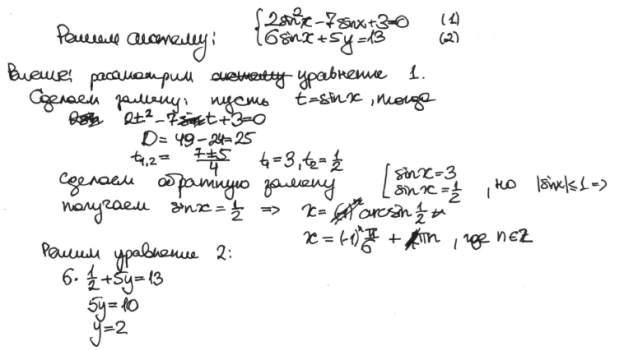 Решим систему: {2sin²x-7sinx+3=0 (1)
{6sinx+5y=13 (2)
рассмотрим уравнение 1.
Сделаем замену: пусть t=sinx, тогда
2t²-7t+3=0
D=49-24=25
t₁,₂= (7±5)/4 t₁=3, t₂=1/2
Сделаем обратную замену [sinx=3
[sinx=1/2, но |sinx|≤1 =>
получаем sinx=1/2 => x= arcsin 1/2
x=(-1)ⁿ π/6 + πn, где n∈Z
Решим уравнение 2:
6·1/2+5y=13
5y=10
y=2